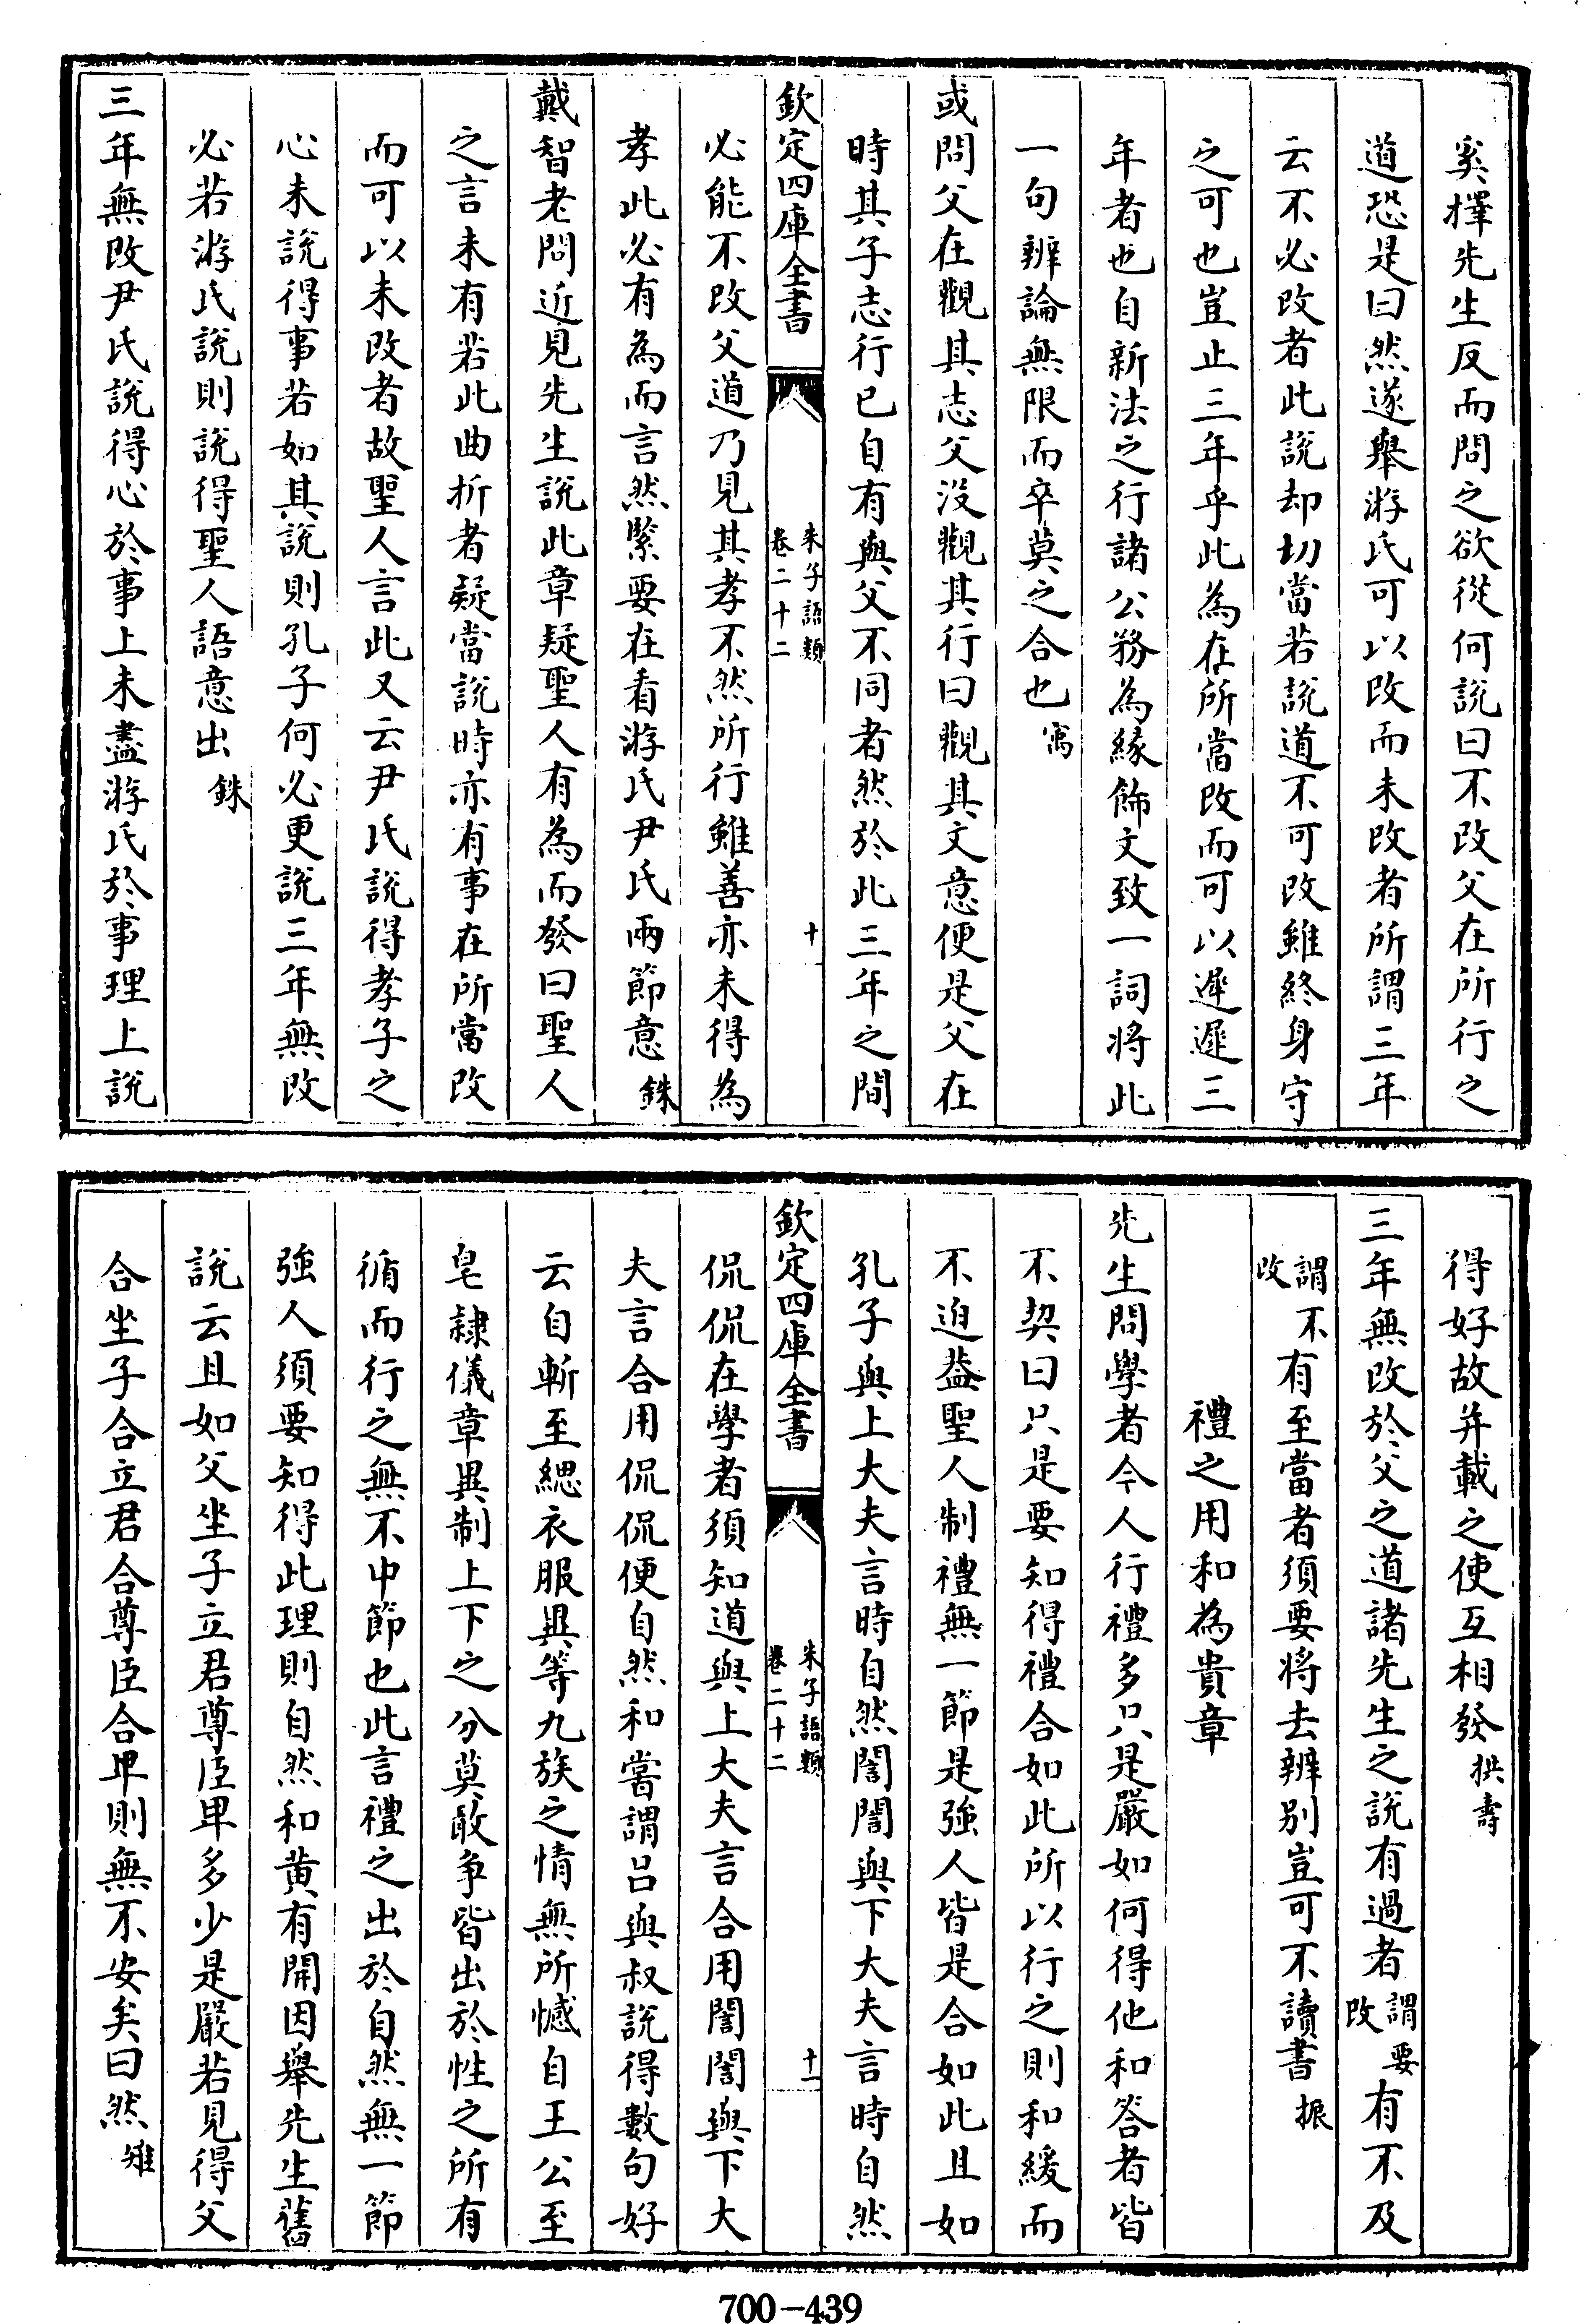 奚擇先生反而問之欲從何說曰不改父在所行之
道恐是曰然遂舉游氏可以改而未改者所謂三年
云不必改者此說却切當若說道不可改雖終身守
之可也豈止三年乎此為在所當改而可以遲遲三
年者也自新法之行諸公務為緣飾文致一詞將此
一句辨論無限而卒莫之合也㝢
或問父在觀其志父沒觀其行曰觀其文意便是父在
時其子志行已自有與父不同者然於此三年之間
欽定四庫全書
朱子語類
卷二十二
十
必能不改父道乃見其孝不然所行雖善亦未得為
孝此必有為而言然緊要在看游氏尹氏兩節意銖
戴智老問近見先生說此章疑聖人有為而發曰聖人
之言未有若此曲折者疑當說時亦有事在所當改
而可以未改者故聖人言此又云尹氏說得孝子之
心未說得事若如其說則孔子何必更說三年無改
必若游氏說則說得聖人語意出銖
三年無改尹氏說得心於事上未盡游氏於事理上說
得好故并載之使互相發拱壽
三年無改於父之道諸先生之說有過者謂要改有不及
謂不改有至當者須要將去辨别豈可不讀書振
禮之用和為貴章
先生問學者今人行禮多只是嚴如何得他和答者皆
不契曰只是要知得禮合如此所以行之則和緩而
不迫蓋聖人制禮無一節是強人皆是合如此且如
孔子與上大夫言時自然誾誾與下大夫言時自然
欽定四庫全書
朱子語類
卷二十二
十一
侃侃在學者須知道與上大夫言合用誾誾與下大
夫言合用侃侃便自然和嘗謂呂與叔說得數句好
云自斬至緦衣服異等九族之情無所憾自王公至
皂隷儀章異制上下之分莫敢爭皆出於性之所有
循而行之無不中節也此言禮之出於自然無一節
強人須要知得此理則自然和黄有開因舉先生舊
說云且如父坐子立君尊臣卑多少是嚴若見得父
合坐子合立君合尊臣合卑則無不安矣曰然雉
700-439